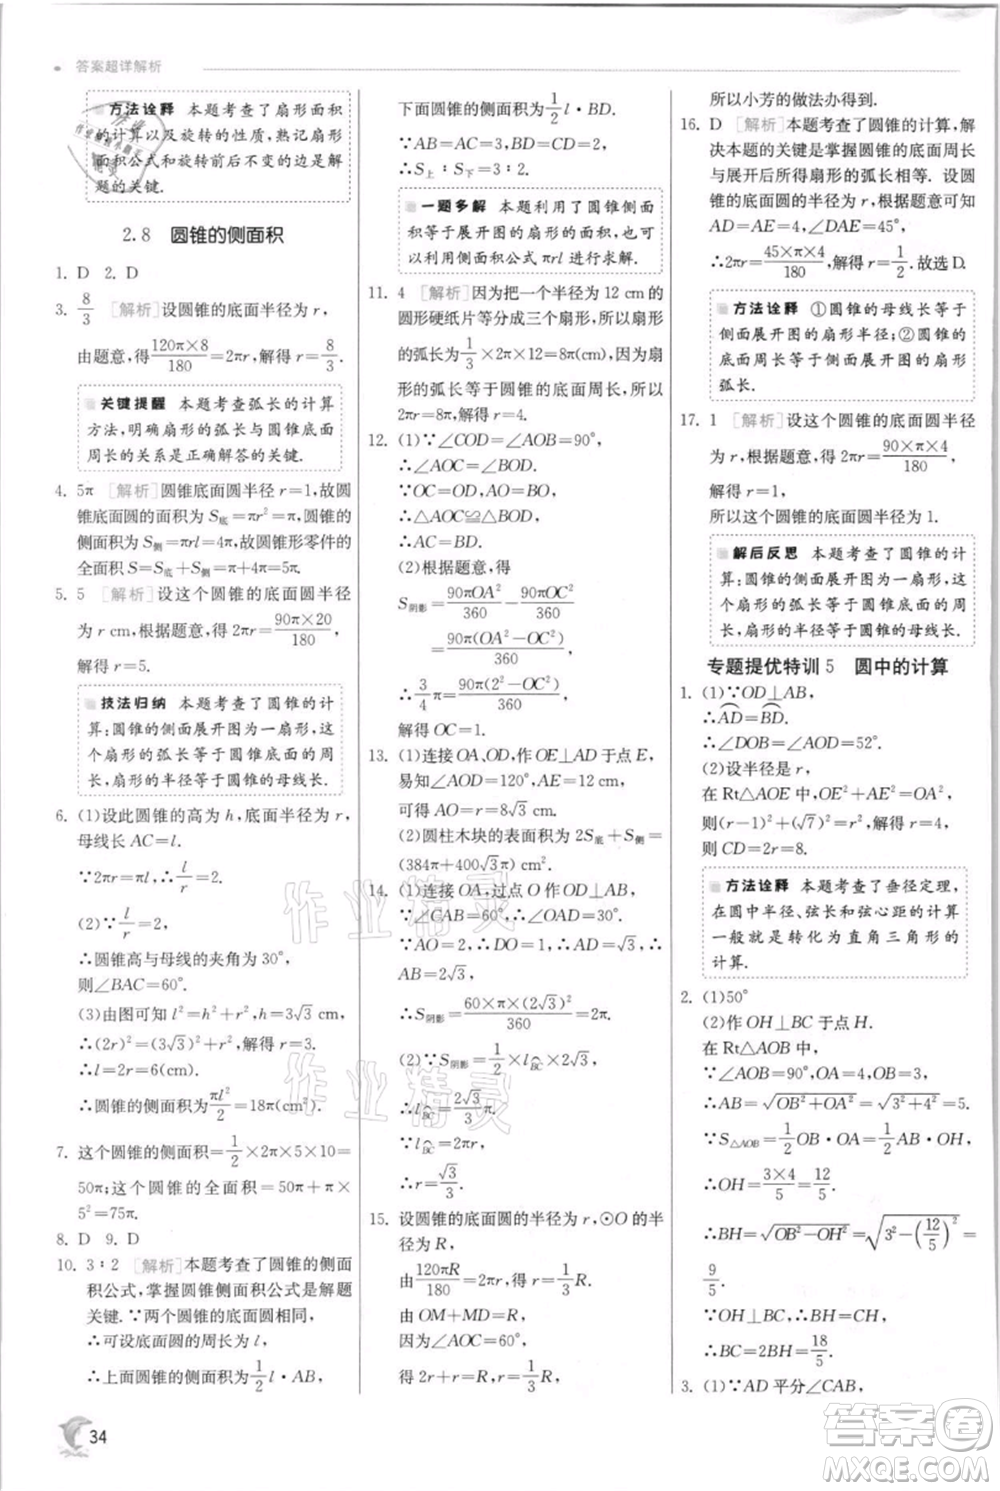 答案超详解析
方法诠释 本题考查了扇形面积
的计算以及旋转的性质,熟记扇形
面积公式和旋转前后不变的边是解
题的关键.
2.8 圆锥的侧面积
1. D 2. D
3. 8/3 [解析]设圆锥的底面半径为r,
由题意,得120π×8/180=2πr,解得r=8/3.
关键提醒 本题考查弧长的计算
方法,明确扇形的弧长与圆锥底面
周长的关系是正确解答的关键.
4. 5π [解析]圆锥底面圆半径r=1,故圆
锥底面圆的面积为S底=πr²=π,圆锥的
侧面积为S侧=πrl=4π,故圆锥形零件的
全面积S=S底+S侧=π+4π=5π.
5. 5 [解析]设这个圆锥的底面圆半径
为r cm,根据题意,得2πr=90π×20/180,
解得r=5.
技法归纳 本题考查了圆锥的计
算:圆锥的侧面展开图为一扇形,扇
形的弧长等于圆锥底面圆的周长,
扇形的半径等于圆锥的母线长.
6. (1)设此圆锥的高为h,底面半径为r,
母线长AC=l.
∵2πr=πl,∴l/r=2.
(2)∵l/r=2,
∴圆锥高与母线的夹角为30°,
则∠BAC=60°.
(3)由图可知l²=h²+r²,h=3√3 cm,
∴(2r)²=(3√3)²+r²,解得r=3.
∴l=2r=6(cm).
∴圆锥的侧面积为πl²/2=18π(cm²).
7. 这个圆锥的侧面积=1/2×2π×5×10=
50π;这个圆锥的全面积=50π+π×
5²=75π.
8. D 9. D
10. 3∶2 [解析]本题考查了圆锥的侧面
积公式,掌握圆锥侧面积公式是解题
关键.∵两个圆锥的底面圆相同,
∴可设底面圆的周长为l,
∴上面圆锥的侧面积为1/2 l·AB,
34
下面圆锥的侧面积为1/2 l·BD.
∵AB∶BD=3∶2,
∴S上∶S下=3∶2.
一题多解 本题利用了圆锥侧面
积等于展开图的扇形的面积,可直
接运用侧面积公式πrl求解.
11. 4 [解析]因为把一个半径为12 cm的
圆形硬纸片等分成三个扇形,所以扇形
的弧长为1/3×2π×12=8π(cm).因为扇
形的弧长等于圆锥的底面周长,所以
2πr=8π,解得r=4.
12. (1)∵∠COD=∠AOB=90°,
∴∠AOC=∠BOD.
∵OC=OD,OA=OB,
∴△AOC≌△BOD.
∴AC=BD.
(2)根据题意,得
S阴影=90πOA²/360-90πOC²/360
=90π(OA²-OC²)/360
∴3/4π=90π(2²-OC²)/360,
解得OC=1.
13. (1)连接OA,OD,作OE⊥AD于点E,
易知∠AOD=120°,AE=12 cm,
可得AO=r=AE/sin 60°=8√3 cm.
(2)圆柱木块的表面积为2S底+S侧=
(384π+400√3π)cm².
14. (1)连接OA,过点O作OD⊥AB,
∵∠CAB=60°,∴∠OAD=30°.
∵AO=2,∴DO=1,∴AD=√3,∴
AB=2√3,
∴S阴影=60×π×(2√3)²/360=2π.
(2)∵S阴影=1/2×l⌢BC×2√3=2π,
∴l⌢BC=2√3/3π.
∵l⌢BC=2πr,
∴r=√3/3.
15. 设圆锥的底面圆的半径为r,⊙O的半
径为R,
由120πR/180=2πr,得r=1/3R.
由OM+MD=R,
因为∠AOC=60°,
得2r+r=R,∴r=1/3R,
所以小芳的做法办得到.
16. D [解析]本题考查了圆锥的计算,解
决本题的关键是掌握圆锥的底面周长
与展开后所得扇形的弧长相等. 设圆
锥的底面圆的半径为r,根据题意可知
AD=AE=4,∠DAE=45°,
∴2πr=45×π×4/180,解得r=1/2.故选D.
方法诠释 ①圆锥的母线长等于
侧面展开图的扇形半径;②圆锥的
底面周长等于侧面展开图的扇形
弧长.
17. 1 [解析]设这个圆锥的底面圆半径
为r,根据题意,得2πr=90×π×4/180,
解得r=1,
所以这个圆锥的底面圆半径为1.
解后反思 本题考查了圆锥的计
算:圆锥的侧面展开图为一扇形,这
个扇形的弧长等于圆锥底面的周
长,扇形的半径等于圆锥的母线长.
专题提优特训5 圆中的计算
1. (1)∵OD⊥AB,
∴⌢AD=⌢BD.
∴∠BOD=∠AOD=52°.
(2)设半径是r,
在Rt△AOE中,OE²+AE²=OA²,
则(r-1)²+(√7)²=r²,解得r=4,
则CD=2r=8.
方法诠释 本题考查了垂径定理,
在圆中半径、弦长和弦心距的计算
一般就转化为直角三角形的计算
计算.
2. (1)50°
(2)作OH⊥BC于点H.
在Rt△AOB中,
∵∠AOB=90°,OA=4,OB=3,
∴AB=√OB²+OA²=√3²+4²=5.
∵S△AOB=1/2OB·OA=1/2AB·OH,
∴OH=3×4/5=12/5.
∴BH=√OB²-OH²=√3²-(12/5)²=
9/5.
∵OH⊥BC,∴BH=CH,
∴BC=2BH=18/5.
3. (1)∵AD平分∠CAB,
作业精灵
作业精灵
答案圈
MXQE.COM